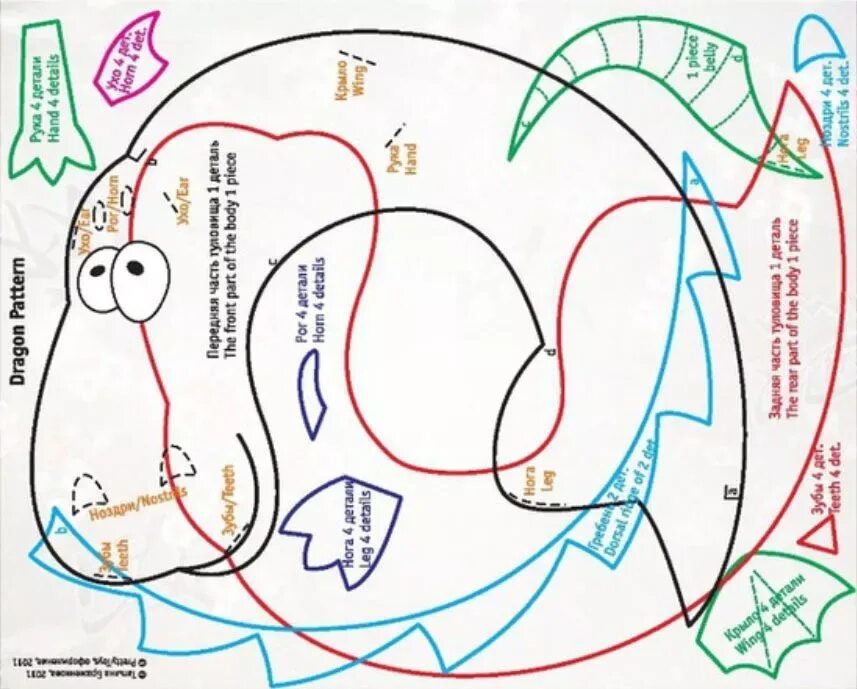 Dragon Pattern
Рука 4 детали
Hand 4 details
Ухо 4 дет.
Horn 4 det.
Крыло
Wing
Рука
Hand
1 piece
belly
c
d
Ноздри 4 дет.
Nostrils 4 det.
Нога
Leg
Ухо/Ear
Рог/Horn
Ухо/Ear
b
a
Передняя часть туловища 1 деталь
The front part of the body 1 piece
c
Рог 4 детали
Horn 4 details
d
Задняя часть туловища 1 деталь
The rear part of the body 1 piece
Ноздри/Nostrils
Зубы/Teeth
Нога
Leg
a
Зубы 4 дет.
Teeth 4 det.
b
Зубы
Teeth
Нога 4 детали
Leg 4 details
Гребень 2 дет.
Dorsal ridge of 2 det.
Крыло 4 детали
Wing 4 details
© Татьяна Браженкова, 2011
© PrettyToys, оформление, 2011